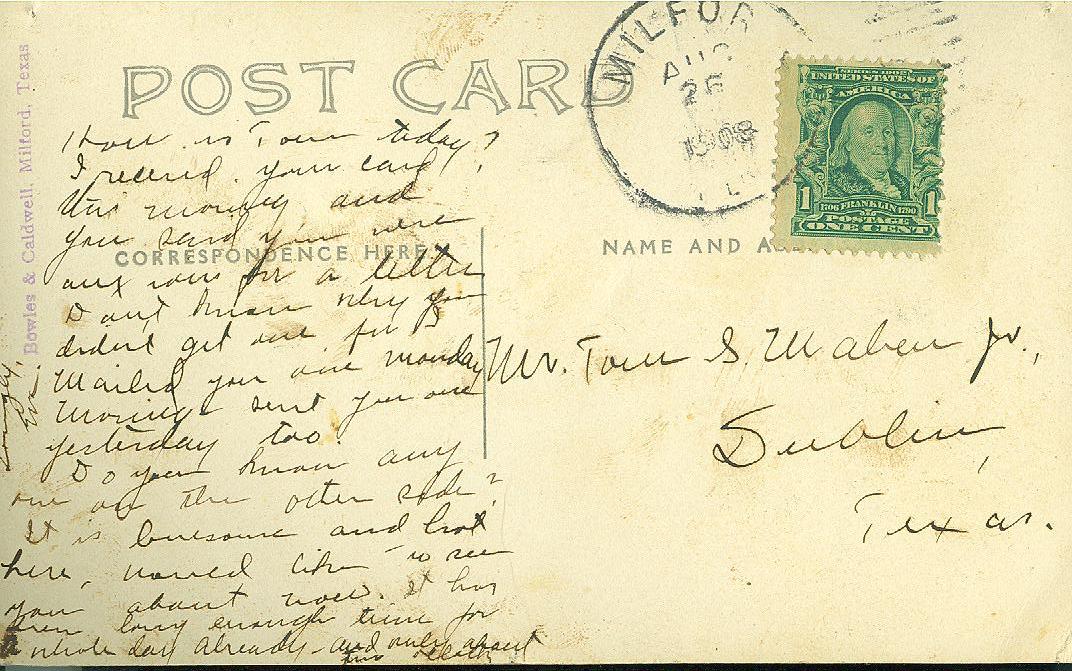 POST CARD
Bowles & Caldwell, Milford, Texas
MILFOR
AUG
25
1908
SERIES 1902
UNITED STATES OF
AMERICA
1 1
1706 FRANKLIN 1790
POSTAGE
ONE CENT
CORRESPONDENCE HERE.
NAME AND
How is Tom today?
I received your card
this morning and
you said you were
anxious for a letter
Don't know why you
didn't get one for I
Mailed you one monday
Morning & sent you one
yesterday too.
Do you know any
one on the other side?
It is lonesome and hot
here, would like to see
you about now. It has
been long enough time for
a whole day already - and only about
Mr. Tom S. Maben Jr.,
Dublin,
Texas.